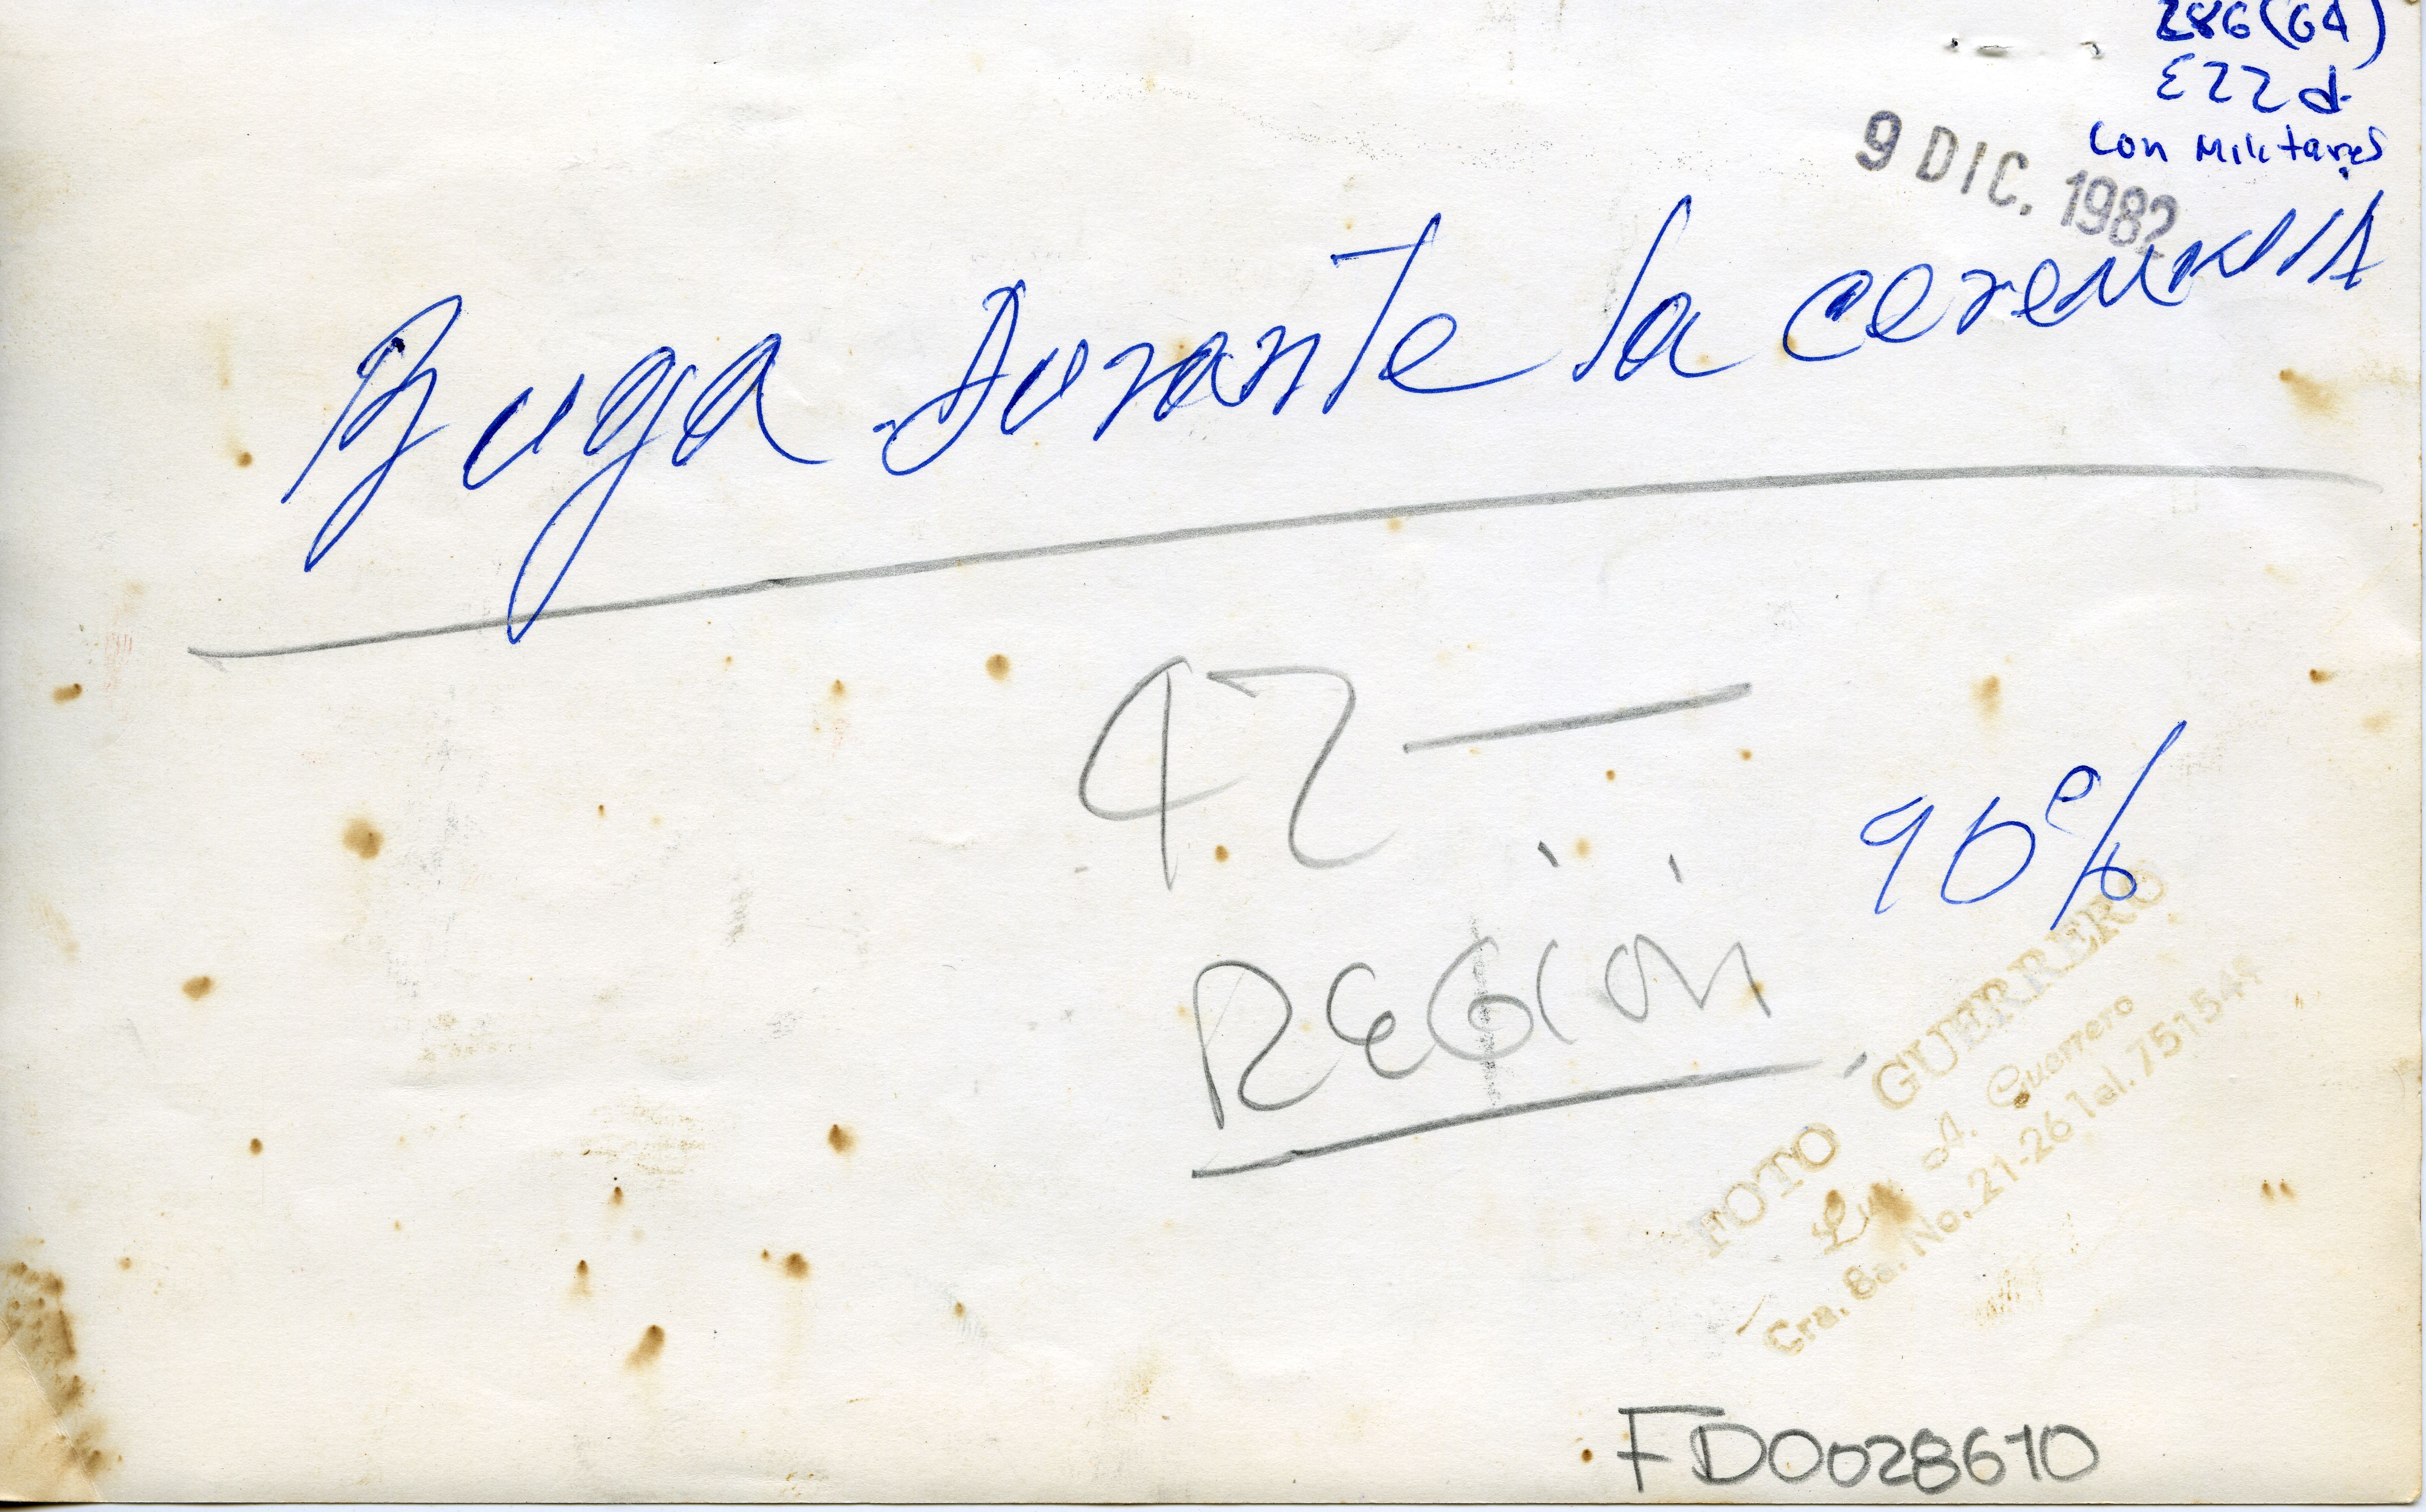 286(64)
E22d
Con Militares
9 DIC. 1982
Buga Durante la ceremonia
42 —
90%
REGION
FOTO GUERRERO
Luis A. Guerrero
Cra. 8a. No. 21-26 Tel. 751541
FD0028610